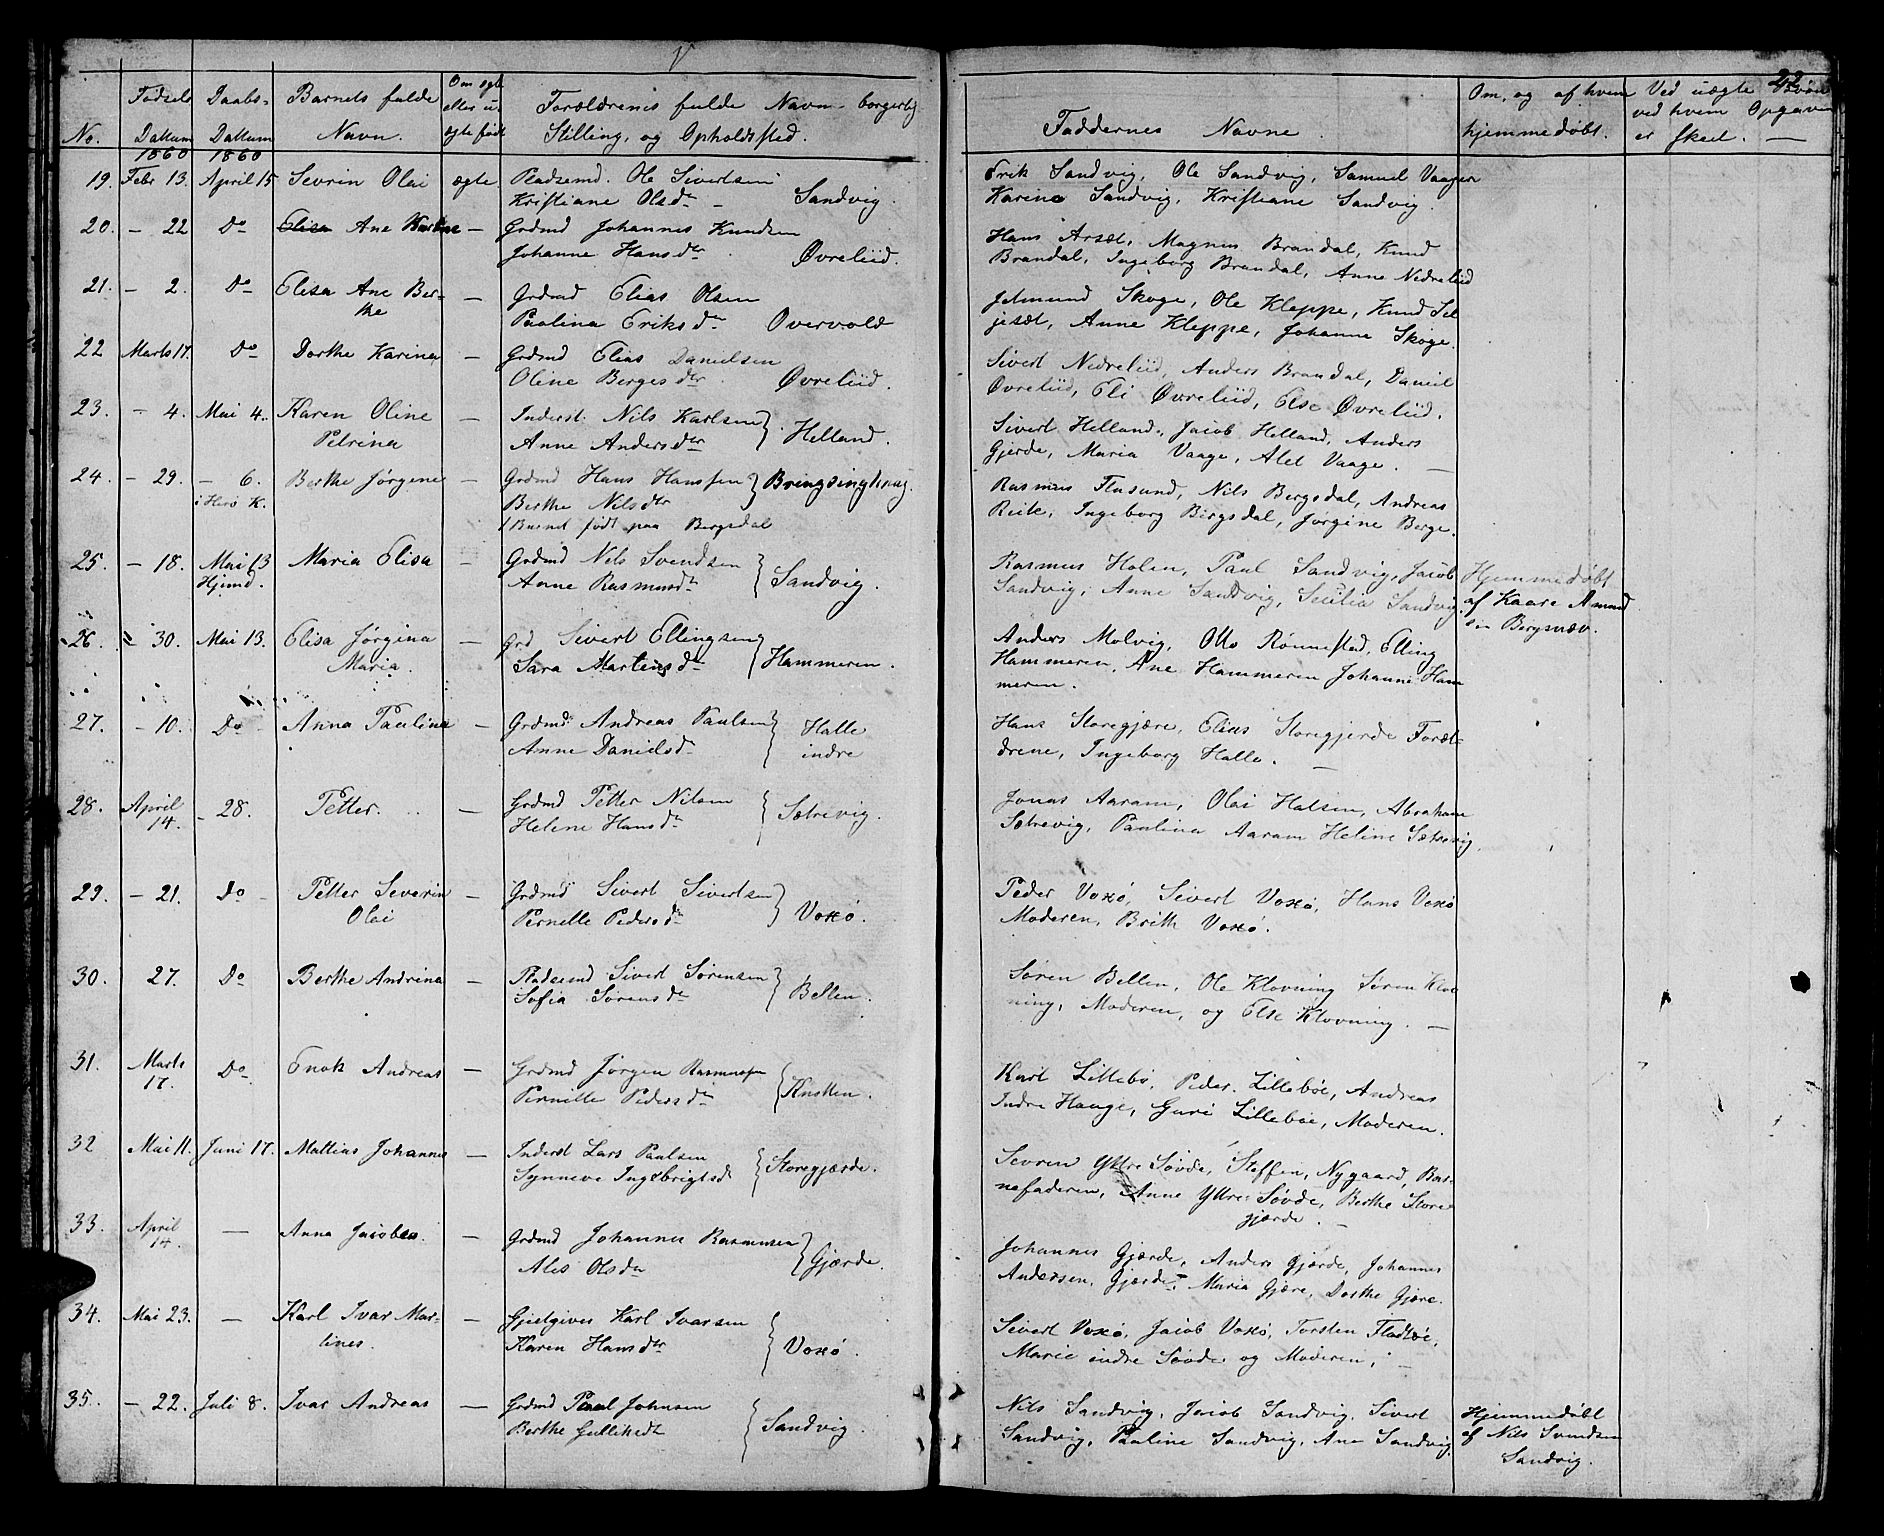 22
No.
Fødsels Dattum
Daabs- Dattum
Barnets fulde Navn.
Om ægte eller uægte født
Forældrenes fulde Navn borgerlig Stilling, og Opholdsted.
Faddernes Navne
Om, og af hvem hjemmedøbt.
Ved uægte ved hvem Opgaven er skeet. —
1860 1860
19. Febr 13. April 15 Sevrin Olai ægte Pladsemd. Ole Sivertsen
Kristiane Olsdr – Sandvig.
Erik Sandvig, Ole Sandvig, Samuel Vaagen
Karine Sandvig, Kristiane Sandvig.
20. – 22 Do Ane — Grdmd Johannes Knudsen
Johanne Hansdtr. Øvreliid.
Hans Arsæt, Magnus Brandal, Knud
Brandal, Ingeborg Brandal, Anne Nedreliid
21. – 2. Do Elisa Ane Ber-
the — Grdmd Elias Olsen
Paulina Eriksdr Overvold
Skoge, Ole Kleppe, Knud Sil
jesæt, Anne Kleppe, Johanne Skoge.
22 Marts 17. Do Dorthe Karina — Grdmd Elias Danielsen
Oline Bergesdtr. Øvreliid.
Sivert Nedreliid, Anders Brandal, Daniel
Øvreliid, Eli Øvreliid, Else Øvreliid.
23. – 4. Mai 4. Karen Oline
Petrina — Inderst. Nils Karlsen
Anne Andersdtr } Helland.
Sivert Helland, Jacob Helland, Anders
Gjerde, Maria Vaage, Alet Vaage. —
24. – 29. – 6.
i Herø K. Berthe Jørgine — Grdmd Hans Hanssen
Berthe Nilsdtr } Bringsinghoug.
/ Barnet født paa Bergsdal
Rasmus Flusund, Nils Bergsdal, Andreas
Reite, Ingeborg Bergsdal, Jørgine Berge.
25. – 18. Mai 13
Hjemd. Maria Elisa – Grdmd Nils Svendsen
Anne Rasmusdr } Sandvig.
Rasmus Holen, Paul Sandvig, Jacob
Sandvig, Anne Sandvig, Secilia Sandvig.
Hjemmedøbt
af Kaare Amund
sen Bergsnæv.
26. – 30. Mai 13. Elisa Jørgina
Maria. — Grd Sivert Ellingsen
Sara Martensdr } Hammeren.
Anders Molvig, Otto Rønnestad, Elling
Hammeren, Ane Hammeren Johanne Ham
meren.
27. – 10. Do Anna Paulina — Grdmd. Andreas Paulsen
Anne Danielsdr } Halle
indre
Hans Storegjære, Elias Storegjerde Foræl-
drene, Ingeborg Halle. —
28. April
14. – 28. Petter. — Grdmd Petter Nilsen
Helene Hansdr { Sætrevig.
Jonas Aaram, Olai Halsen, Abraham
Sætrevig, Paulina Aaram Heline Sætrevig.
29. – 21. Do Petter Severin
Olai — Grdmd Sivert Sivertsen
Pernille Pedersdr } Voxø.
Peder Voxø, Sivert Voxø, Hans Voxø
Moderen, Brith Voxø.
30. 27. Do Berthe Andrina — Pladsemd Sivert Sørensen
Sofia Sørensdr } Bellen.
Søren Bellen, Ole Klovning Søren Klov
ning, Moderen, og Else Klovning. —
31. Marts
17. Do Enok Andreas — Grdmd Jørgen Rasmussen
Pernille Pedersdr { Knotten.
Karl Lillebø, Peder Lillebøe, Andreas
Indre Hauge, Guri Lillebøe, Moderen.
32 Mai 11. Juni 17. Mattias Johannes — Inderst Lars Paulsen
Synneve Ingebrigtsd { Storegjærde.
Sevren Yttre Søvde, Steffen, Nygaard, Bar-
nefaderen, Anne Yttre Søvde, Berthe Store
gjærde. —
33. April
14. — Anna – Grdmd Johannes Rasmussen
Ales Olsdr } Gjærde.
Johannes Gjærde, Anders Gjærde, Johannes
Andersen, Gjærde, Maria Gjære, Dorthe Gjære.
34. Mai 23. — Karl Ivar Mar-
tines. — Gjestgiver Karl Ivarsen
Karen Hansdtr { Voxø.
Sivert Voxø, Jacob Voxø, Torsten
Marie indre Søvde og Moderen, –
35. – 22. Juli 8. Ivar Andreas — Grdmd Paul Johnsen
Berthe { Sandvig.
Nils Sandvig, Jacob Sandvig, Sivert
Sandvig, Pauline Sandvig, Ane Sandvig.
Hjemmedøbt
af Nils Svendsen
Sandvig.